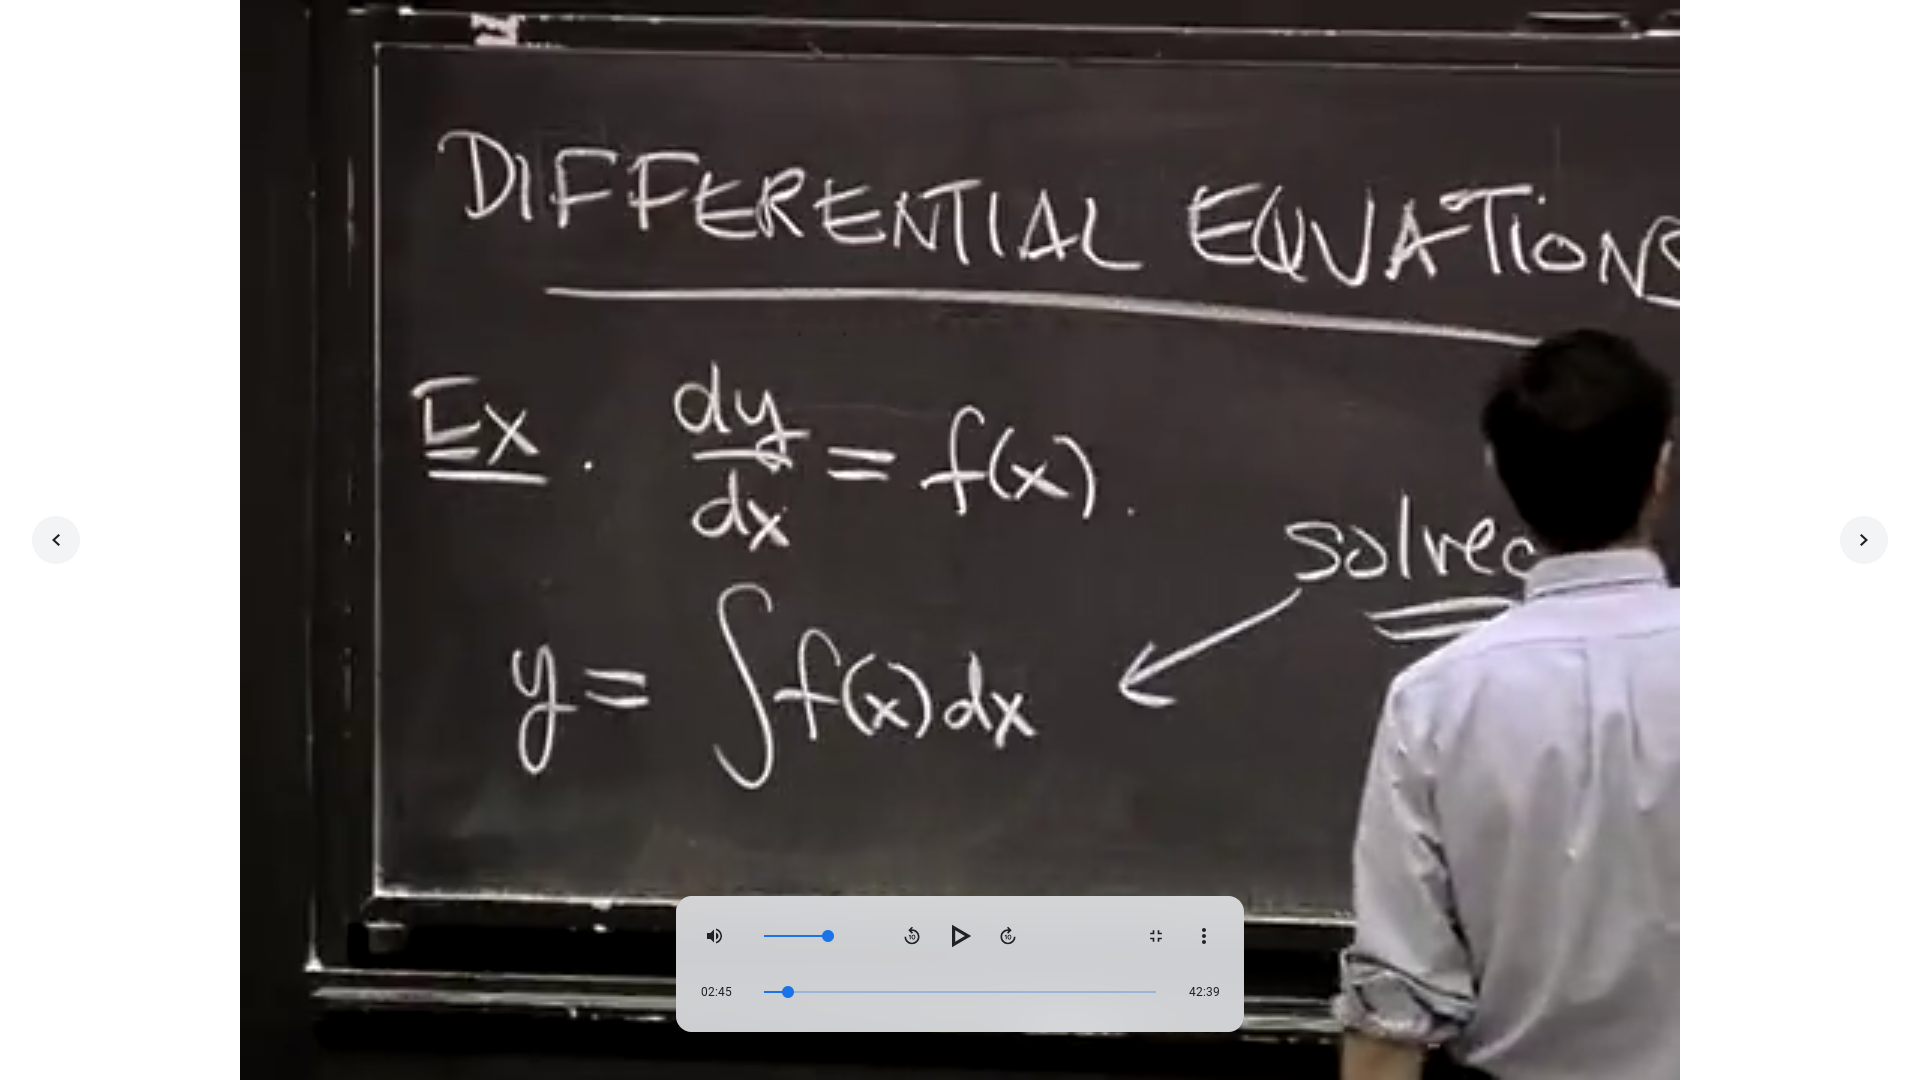 DIFFERENTIAL EQUATIONS
Ex. dy/dx = f(x).
y = ∫f(x)dx
02:45
42:39